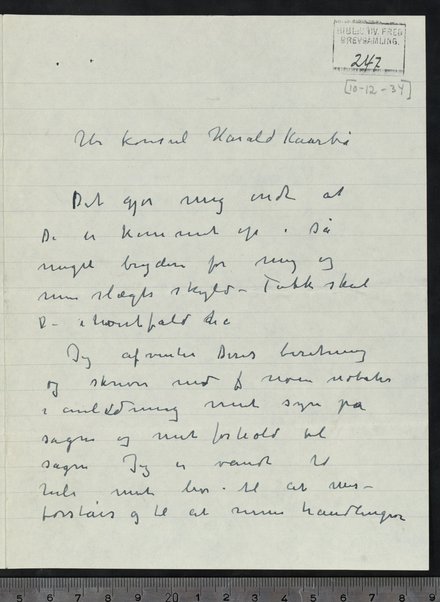 BIBLIOTEK. FRED
BREVSAMLING.
242
[10-12-34]
Hr Konsul Harald Kaarbø
Det gjør mig ondt at
De er kommet op i så
meget bryderi for mig og
min slægts skyld – Takk skal
De i hvert fald ha
Jeg afventer Deres beretning
og skriver ned
i anledning mit syn på
sagen og mit forhold til
sagen Jeg er vandt til
hele mit liv – til at mis-
forståes og til at mine handlinger